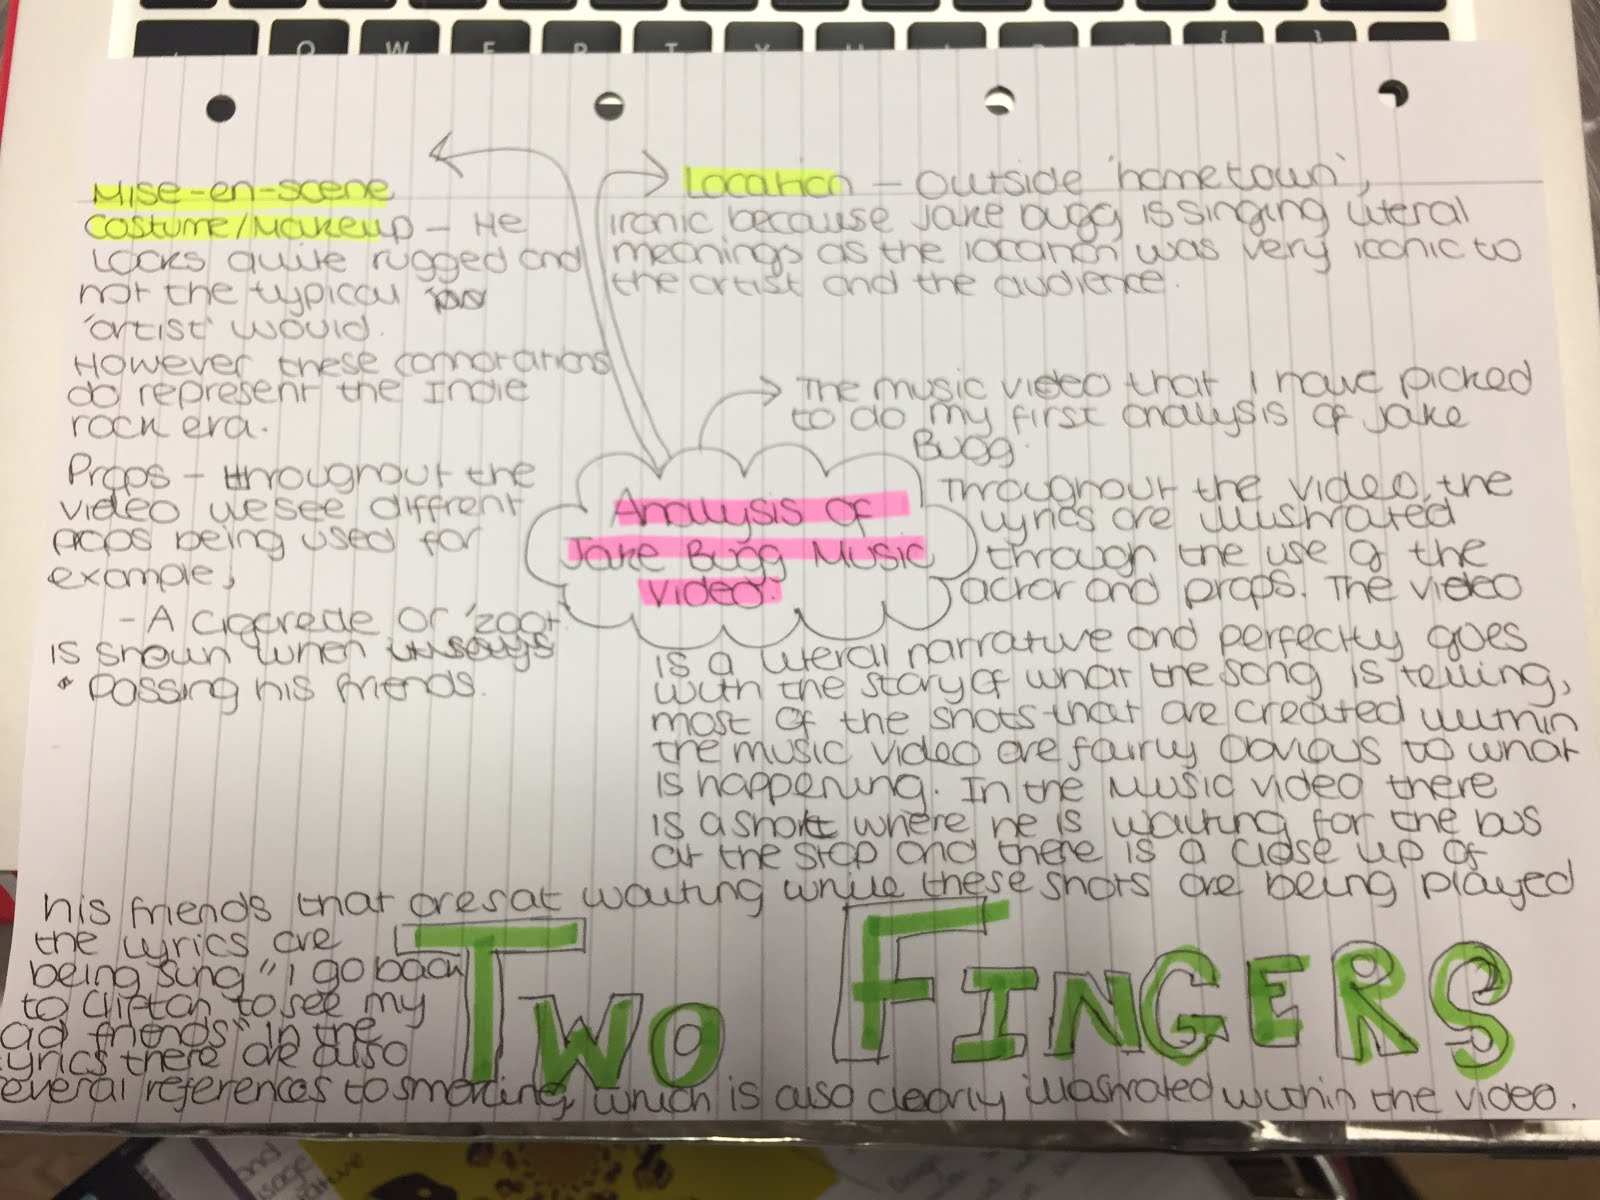 Q W E R T Y U
{ }
Mise-en-scene
Costume/Makeup - He
looks quite rugged and
not the typical
'artist' would.
However these connotations
do represent the Indie
rock era.
Props - throughout the
video we see diffrent
props being used for
example;
- A cigerette or 'zoot'
is shown when it says
passing his friends.
Location - outside 'hometown',
ironic because Jake Bugg is singing literal
meanings as the location was very iconic to
the artist and the audience.
The music video that I have picked
to do my first analysis of Jake
Bugg.
Analysis of
Jake Bugg Music
Video.
Throughout the video, the
lyrics are illustrated
through the use of the
actor and props. The video
is a literal narrative and perfectly goes
with the story of what the song is telling,
most of the shots that are created within
the music video are fairly obvious to what
is happening. In the music video there
is a shot where he is waiting for the bus
at the stop and there is a close up of
his friends that are sat waiting while these shots are being played
the lyrics are
being sung "I go back
to Clifton to see my
old friends" In the
lyrics there are also
several references to smoking, which is also clearly illustrated within the video.
Two Fingers
and